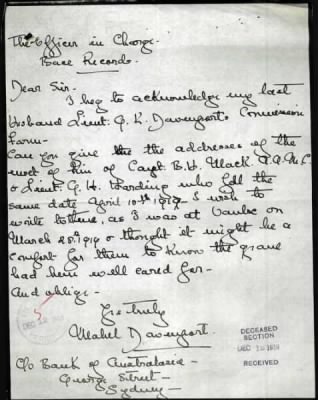 The Officer in Charge.
Base Records.
Dear Sir.
I beg to acknowledge my last
husband Lieut. G. K. Davenport's Commission
Form.
Can you give me the addresses of the
next of kin of Capt. B. H. Mack. A.A.M.C
& Lieut. G. H. Harding who fell the
same date April 10th 1917. I wish to
write to them, as I was at Vaulx on
March 25th 1919 & thought it might be a
comfort for them to know the grave
had been well cared for.
And oblige.
Yrs truly
Mabel Davenport.
c/o Bank of Australasia.
George Street.
Sydney.
DECEASED
SECTION
RECEIVED